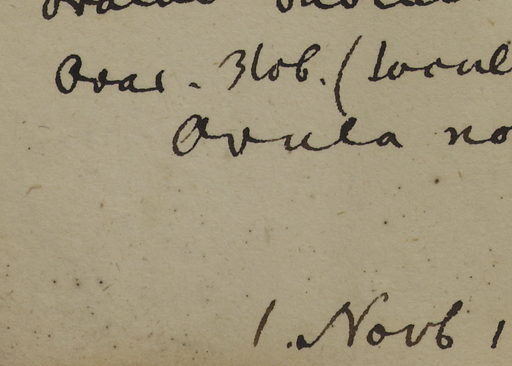 Ovar. 3lob. (locul
Ovula no
1. Novb 1